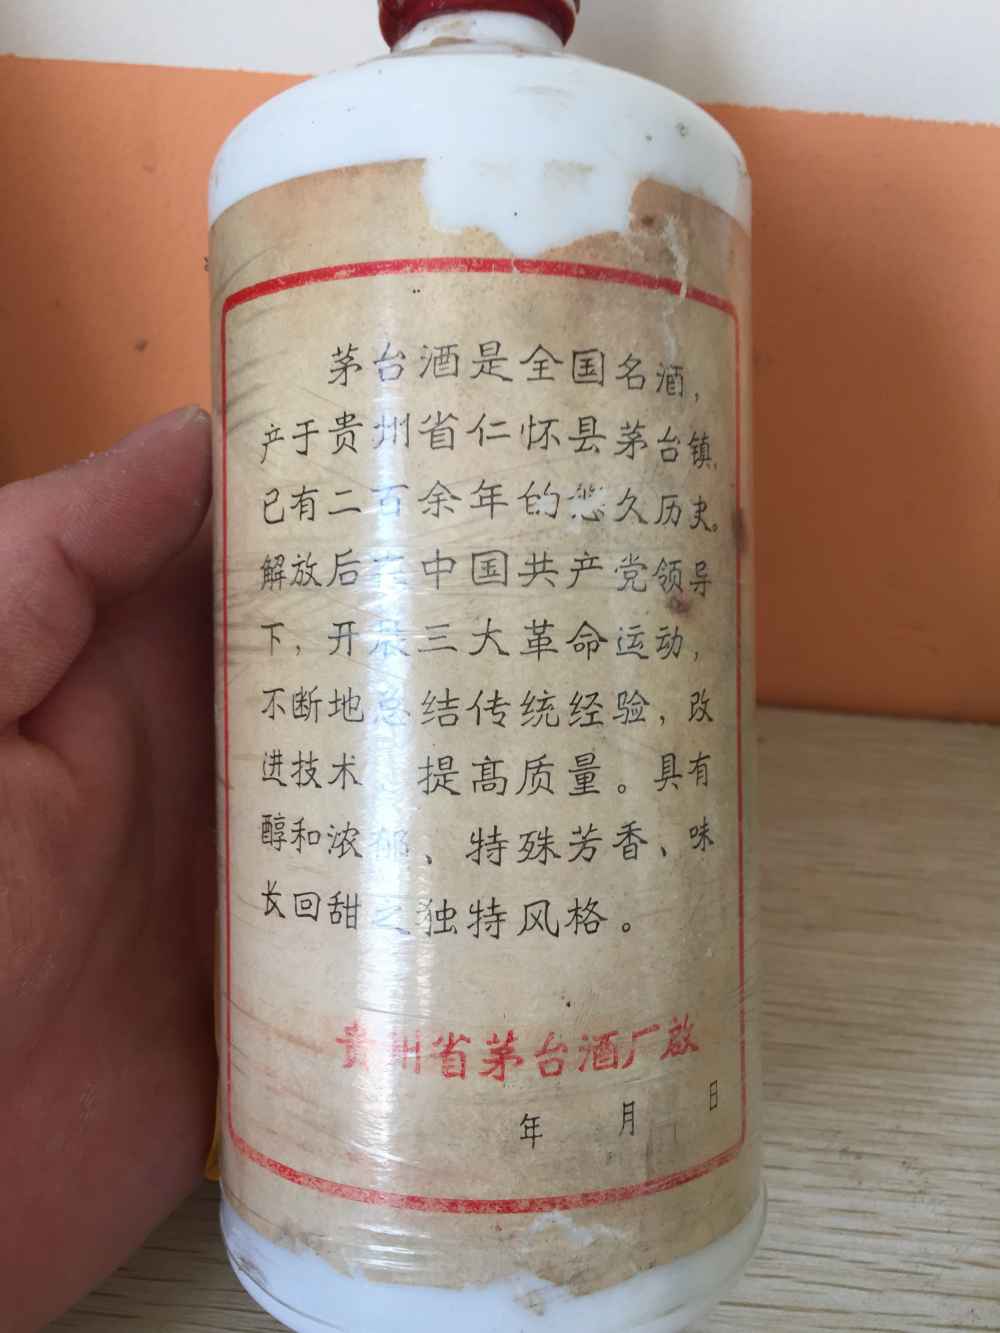 茅台酒是全国名酒，
产于贵州省仁怀县茅台镇，
已有二百余年的悠久历史。
解放后在中国共产党领导
下，开展三大革命运动，
不断地总结传统经验，改
进技术，提高质量。具有
醇和浓郁、特殊芳香、味
长回甜之独特风格。
贵州省茅台酒厂启
年 月 日